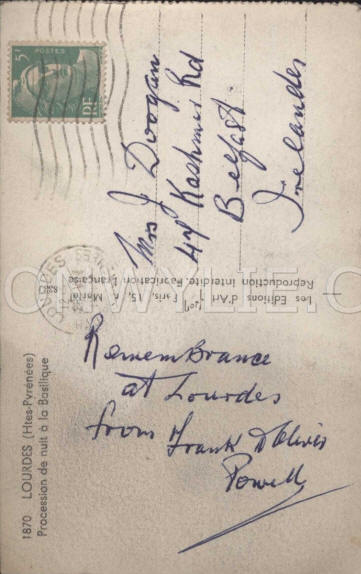 5F
POSTES
RF
LOURDES
Mrs J Doogan
44 Kashmir Rd
Belfast
Irelandes
Les Editions d'Art
Paris, 15, r. Martel
Reproduction Interdite, Fabrication Française
ONWYLIE.C
RememBrance
at Lourdes
from Frank & Olive
Powell
1870 LOURDES (Htes-Pyrénées)
Procession de nuit à la Basilique